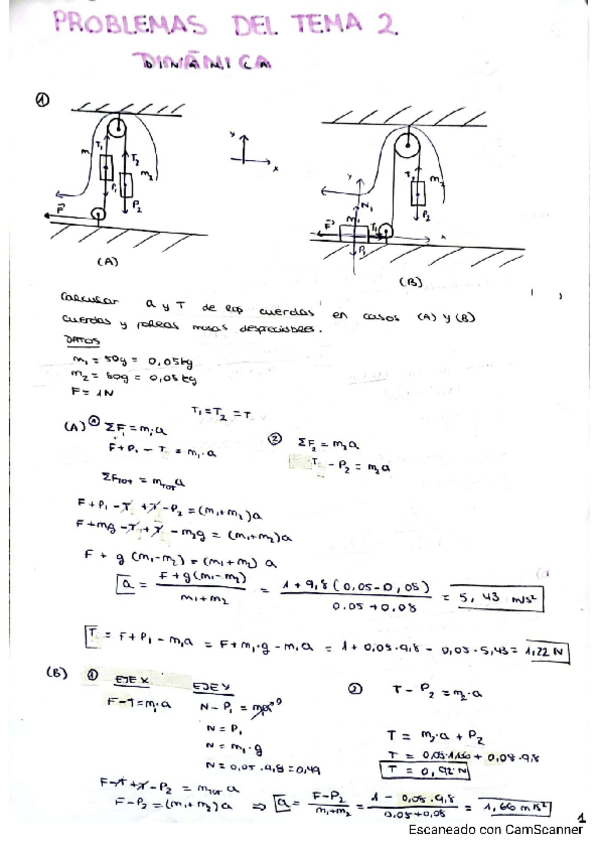 PROBLEMAS DEL TEMA 2.
DINÁMICA
①
m T₁ T₂ m₂ P₁ P₂ F⃗
y x
y N₁ m₁ F⃗ T₁ P₁ x T₂ m₂ P₂
(A)
(B)
Calcular a y T de las cuerdas en casos (A) y (B)
cuerdas y poleas masas despreciables.
DATOS
m₁ = 50g = 0,05kg
m₂ = 80g = 0,08kg
F = 1N
T₁ = T₂ = T
(A) ① ΣF₁ = m₁a
F + P₁ - T = m₁·a
② ΣF₂ = m₂a
T - P₂ = m₂a
ΣFTOT = mTOT a
F + P₁ - T + T - P₂ = (m₁+m₂)a
F + mg - T + T - m₂g = (m₁+m₂)a
F + g (m₁-m₂) = (m₁+m₂) a
a = F + g(m₁-m₂) / m₁+m₂ = 1 + 9,8 (0,05-0,08) / 0.05 + 0.08 = 5,43 m/s²
T = F + P₁ - m₁a = F + m₁·g - m₁a = 1 + 0,05·9,8 - 0,05·5,43 = 1,22 N
(B) ① EJE X
F - T = m₁a
EJE Y
N - P₁ = m₁a⁰
N = P₁
N = m₁·g
N = 0,05·9,8 = 0,49
② T - P₂ = m₂·a
T = m₂·a + P₂
T = 0,08·1,66 + 0,08·9,8
T = 0,92 N
F - T + T - P₂ = mTOT a
F - P₂ = (m₁+m₂) a ⇒ a = F-P₂ / m₁+m₂ = 1 - 0,08·9,8 / 0,05+0,08 = 1,66 m/s²
1
Escaneado con CamScanner